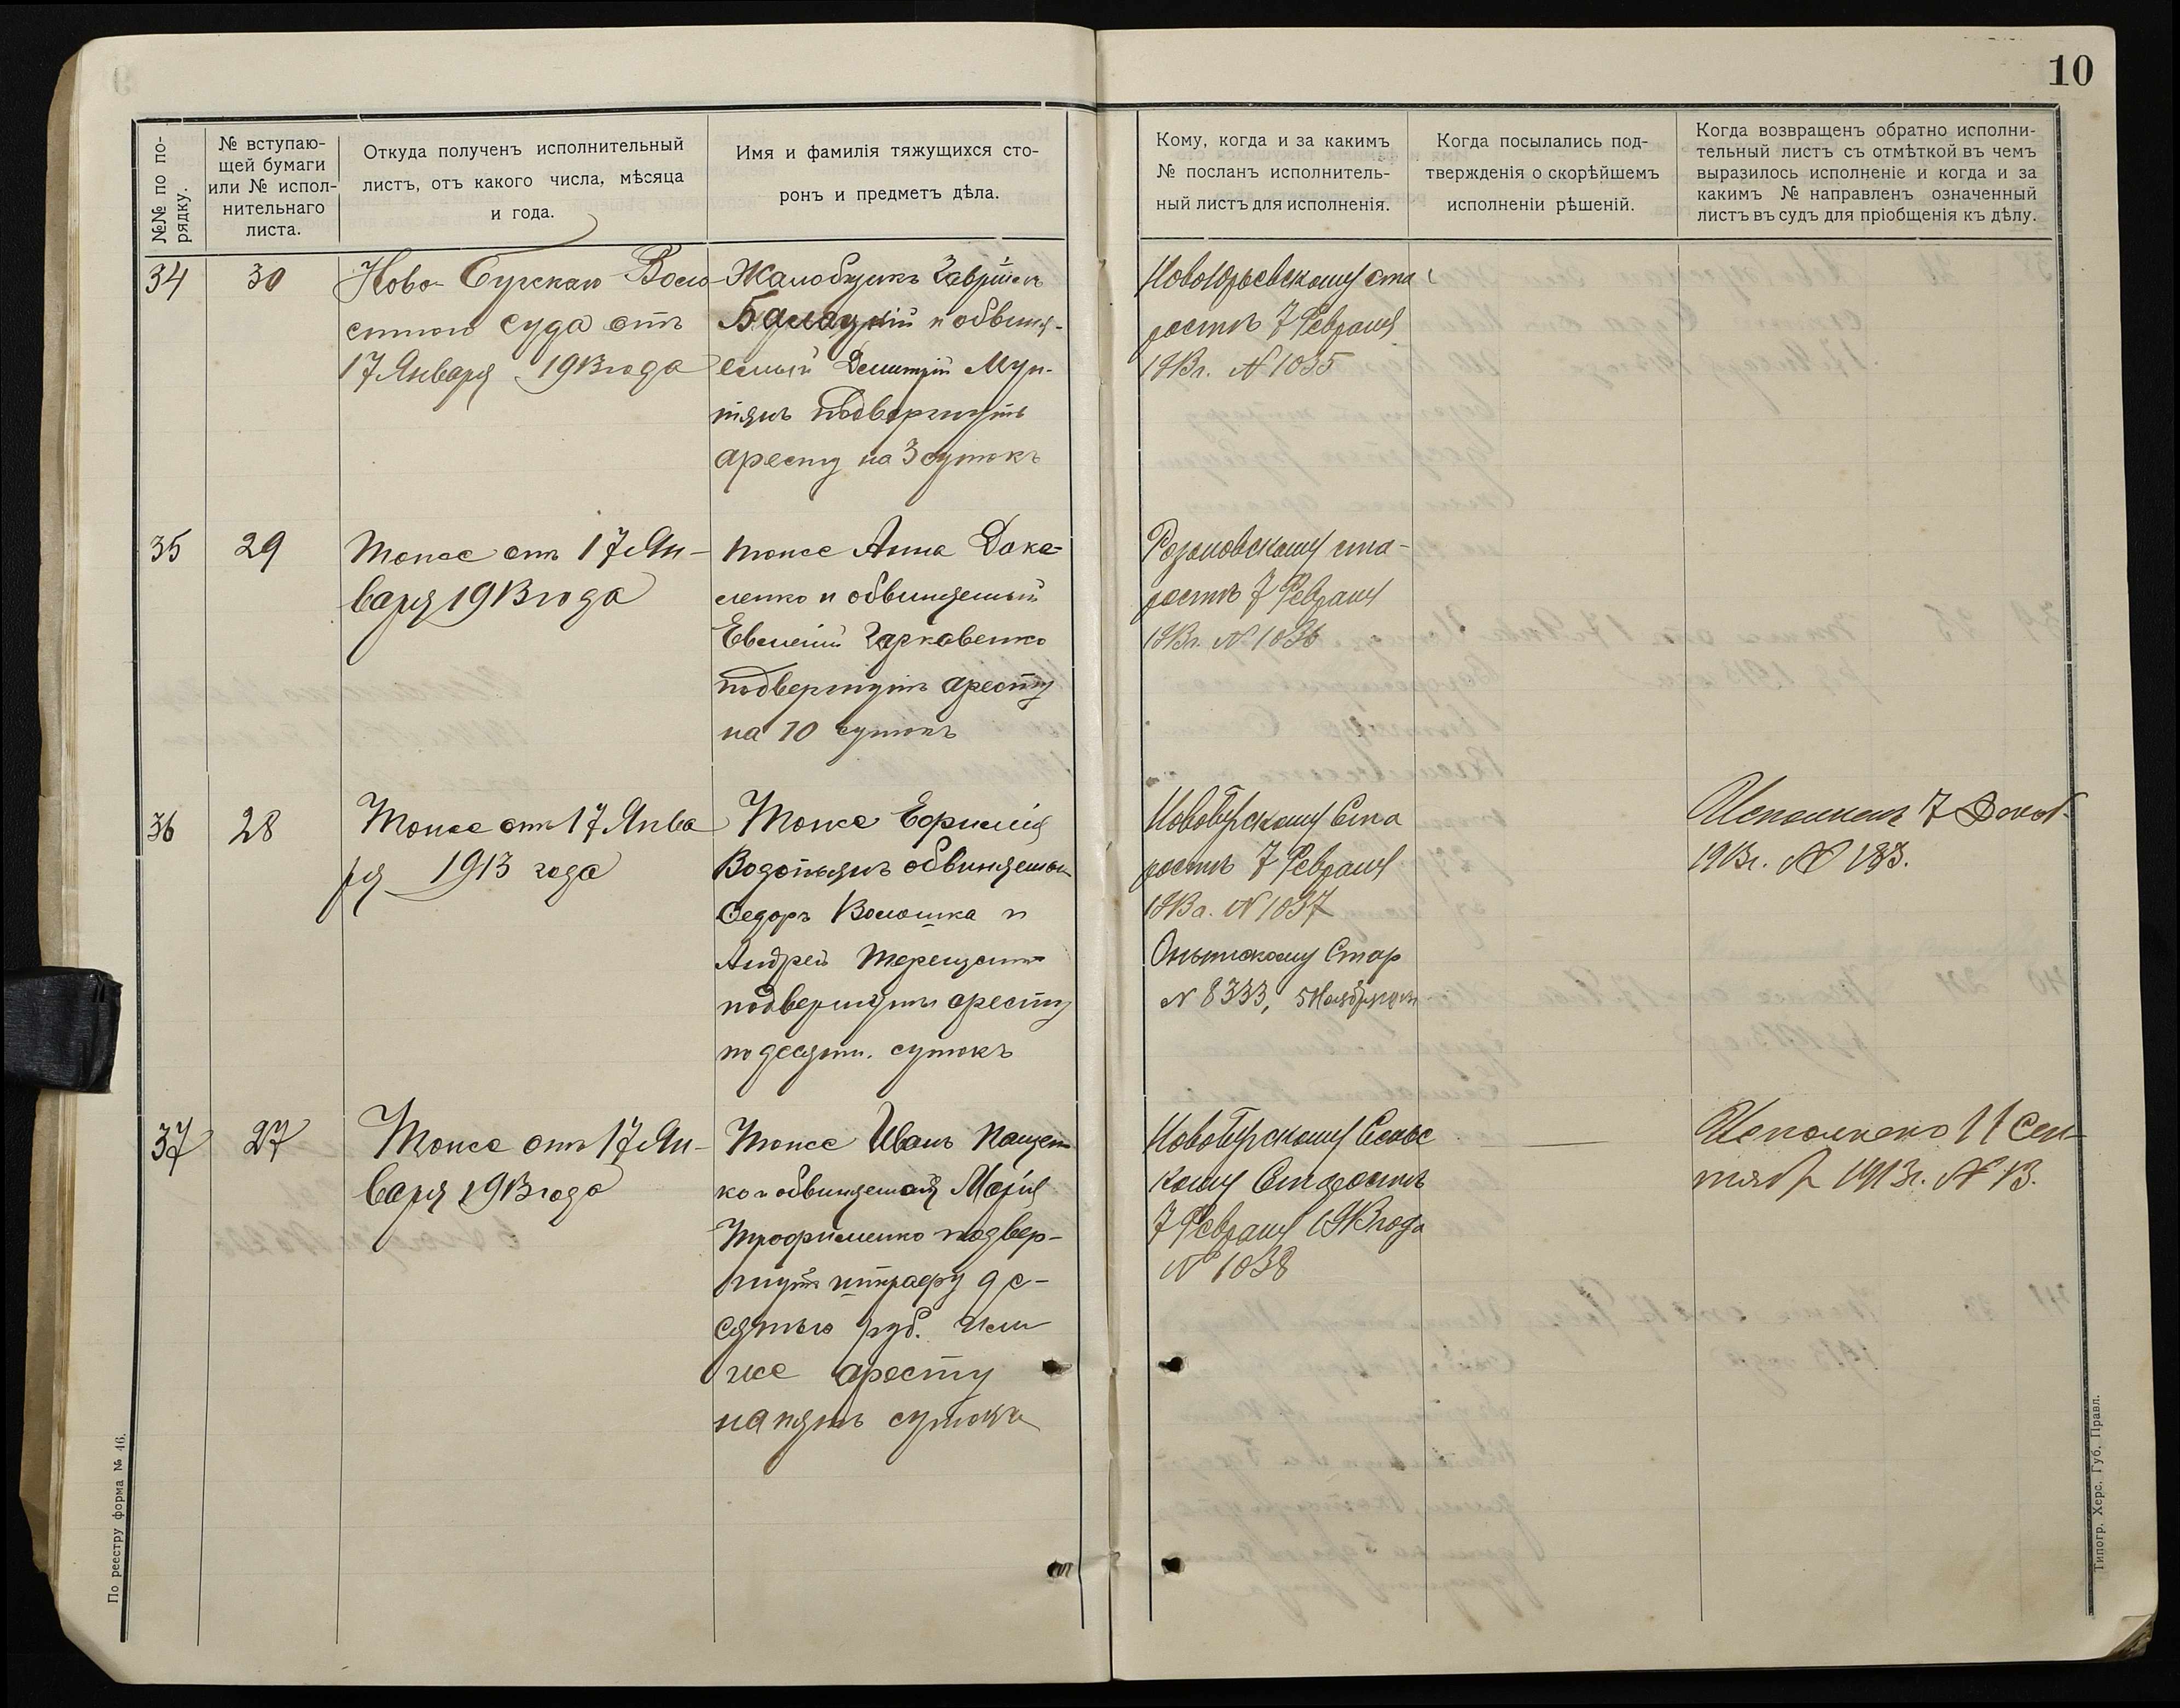 10
№№ по по-
рядку.
№ вступаю-
щей бумаги
или № испол-
нительнаго
листа.
Откуда полученъ исполнительный
листъ, отъ какого числа, мѣсяца
и года.
Имя и фамилія тяжущихся сто-
ронъ и предметъ дѣла.
Кому, когда и за какимъ
№ посланъ исполнитель-
ный листъ для исполненія.
Когда посылались под-
твержденія о скорѣйшемъ
исполненіи рѣшеній.
Когда возвращенъ обратно исполни-
тельный листъ съ отмѣткой въ чемъ
выразилось исполненіе и когда и за
какимъ № направленъ означенный
листъ въ судъ для пріобщенія къ дѣлу.
34
30
Ново-Бугскаго Воло
стного суда отъ
17 Января 1913 года
Жалобщикъ Гавріилъ
и обвиня-
емый Дмитрій Мун-
тянъ подвергнутъ
аресту на 3 сутокъ
НовоЮрьевскому ста
ростѣ 7 Февраля
1913г. № 1035
35
29
тоже отъ 17 Ян-
варя 1913 года
тоже Анна Дока-
ленко и обвиняемый
Евмений Гарковенко
подвергнутъ аресту
на 10 сутокъ
Розановскому ста-
ростѣ 7 Февраля
1913г. № 1036
36
28
Тоже отъ 17 Янва
ря 1913 года
Тоже Ефимія
Водопьянъ обвиняемые
Ѳедоръ Волошка и
Андрей
подвергнуты аресту
по десяти сутокъ
НовоБугскому Ста
ростѣ 7 Февраля
1913г. № 1037
Стар
№ 8333, 5 Ноября
Исполненъ 7 Декаб.
1913г. № 183.
37
27
Тоже отъ 17 Ян-
варя 1913 года
тоже Иванъ Пащен
ко и обвиняемая Марія
Трофименко подвер-
гнута штрафу де-
сятью руб. или
же аресту
на пять сутокъ
НовоБугскому Сельс
кому Старостѣ
7 Февраля 1913 года
№ 1038
Исполнено 11 Сен-
тябр 1913г. № 13.
По реестру форма № 46.
Типогр. Херс. Губ. Правл.